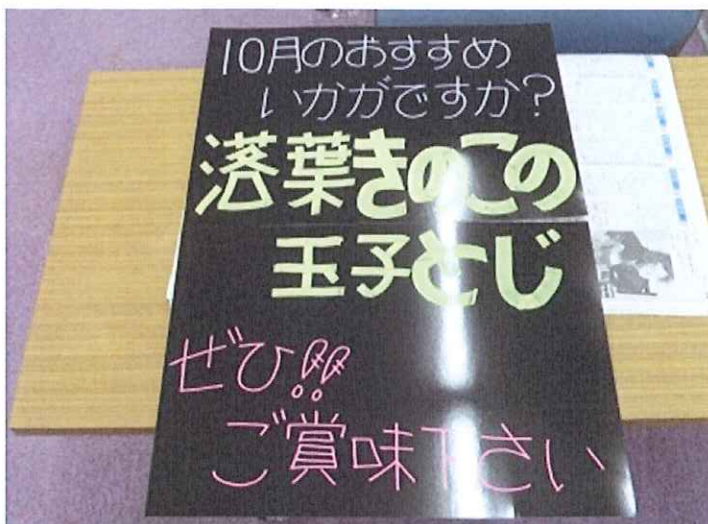 10月のおすすめ
いかがですか?
落葉きのこの
玉子とじ
ぜひ!!
ご賞味下さい